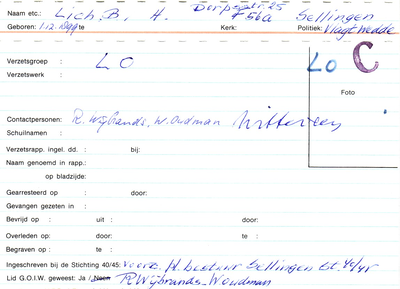 Dorpsstr. 25
Naam etc.: Lich, B. H. F 56a Sellingen
Geboren: 1-12-1899 te Kerk: Politiek: Vlagtwedde
Verzetsgroep : LO LO C
Verzetswerk :
Foto
Contactpersonen: R. Wijbrands, W. Oudman
Schuilnamen :
Verzetsrapp. ingel. dd. : bij:
Naam genoemd in rapp.:
op bladzijde:
Gearresteerd op : door:
Gevangen gezeten in :
Bevrijd op : uit : door:
Overleden op: te : door:
Begraven op : te :
Ingeschreven bij de Stichting 40/45: Voorz. Pl. bestuur Sellingen St. 40/45
Lid G.O.I.W. geweest: Ja / Neen R Wijbrands - W Oudman